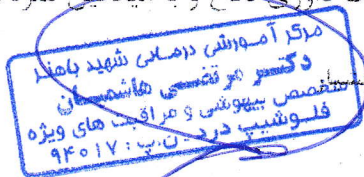 مرکز آموزشی درمانی شهید باهنر
دکتر مرتضی هاشمیان
متخصص بیهوشی و مراقبت های ویژه
فلوشیپ درد - ن.پ : ۹۴۰۱۷